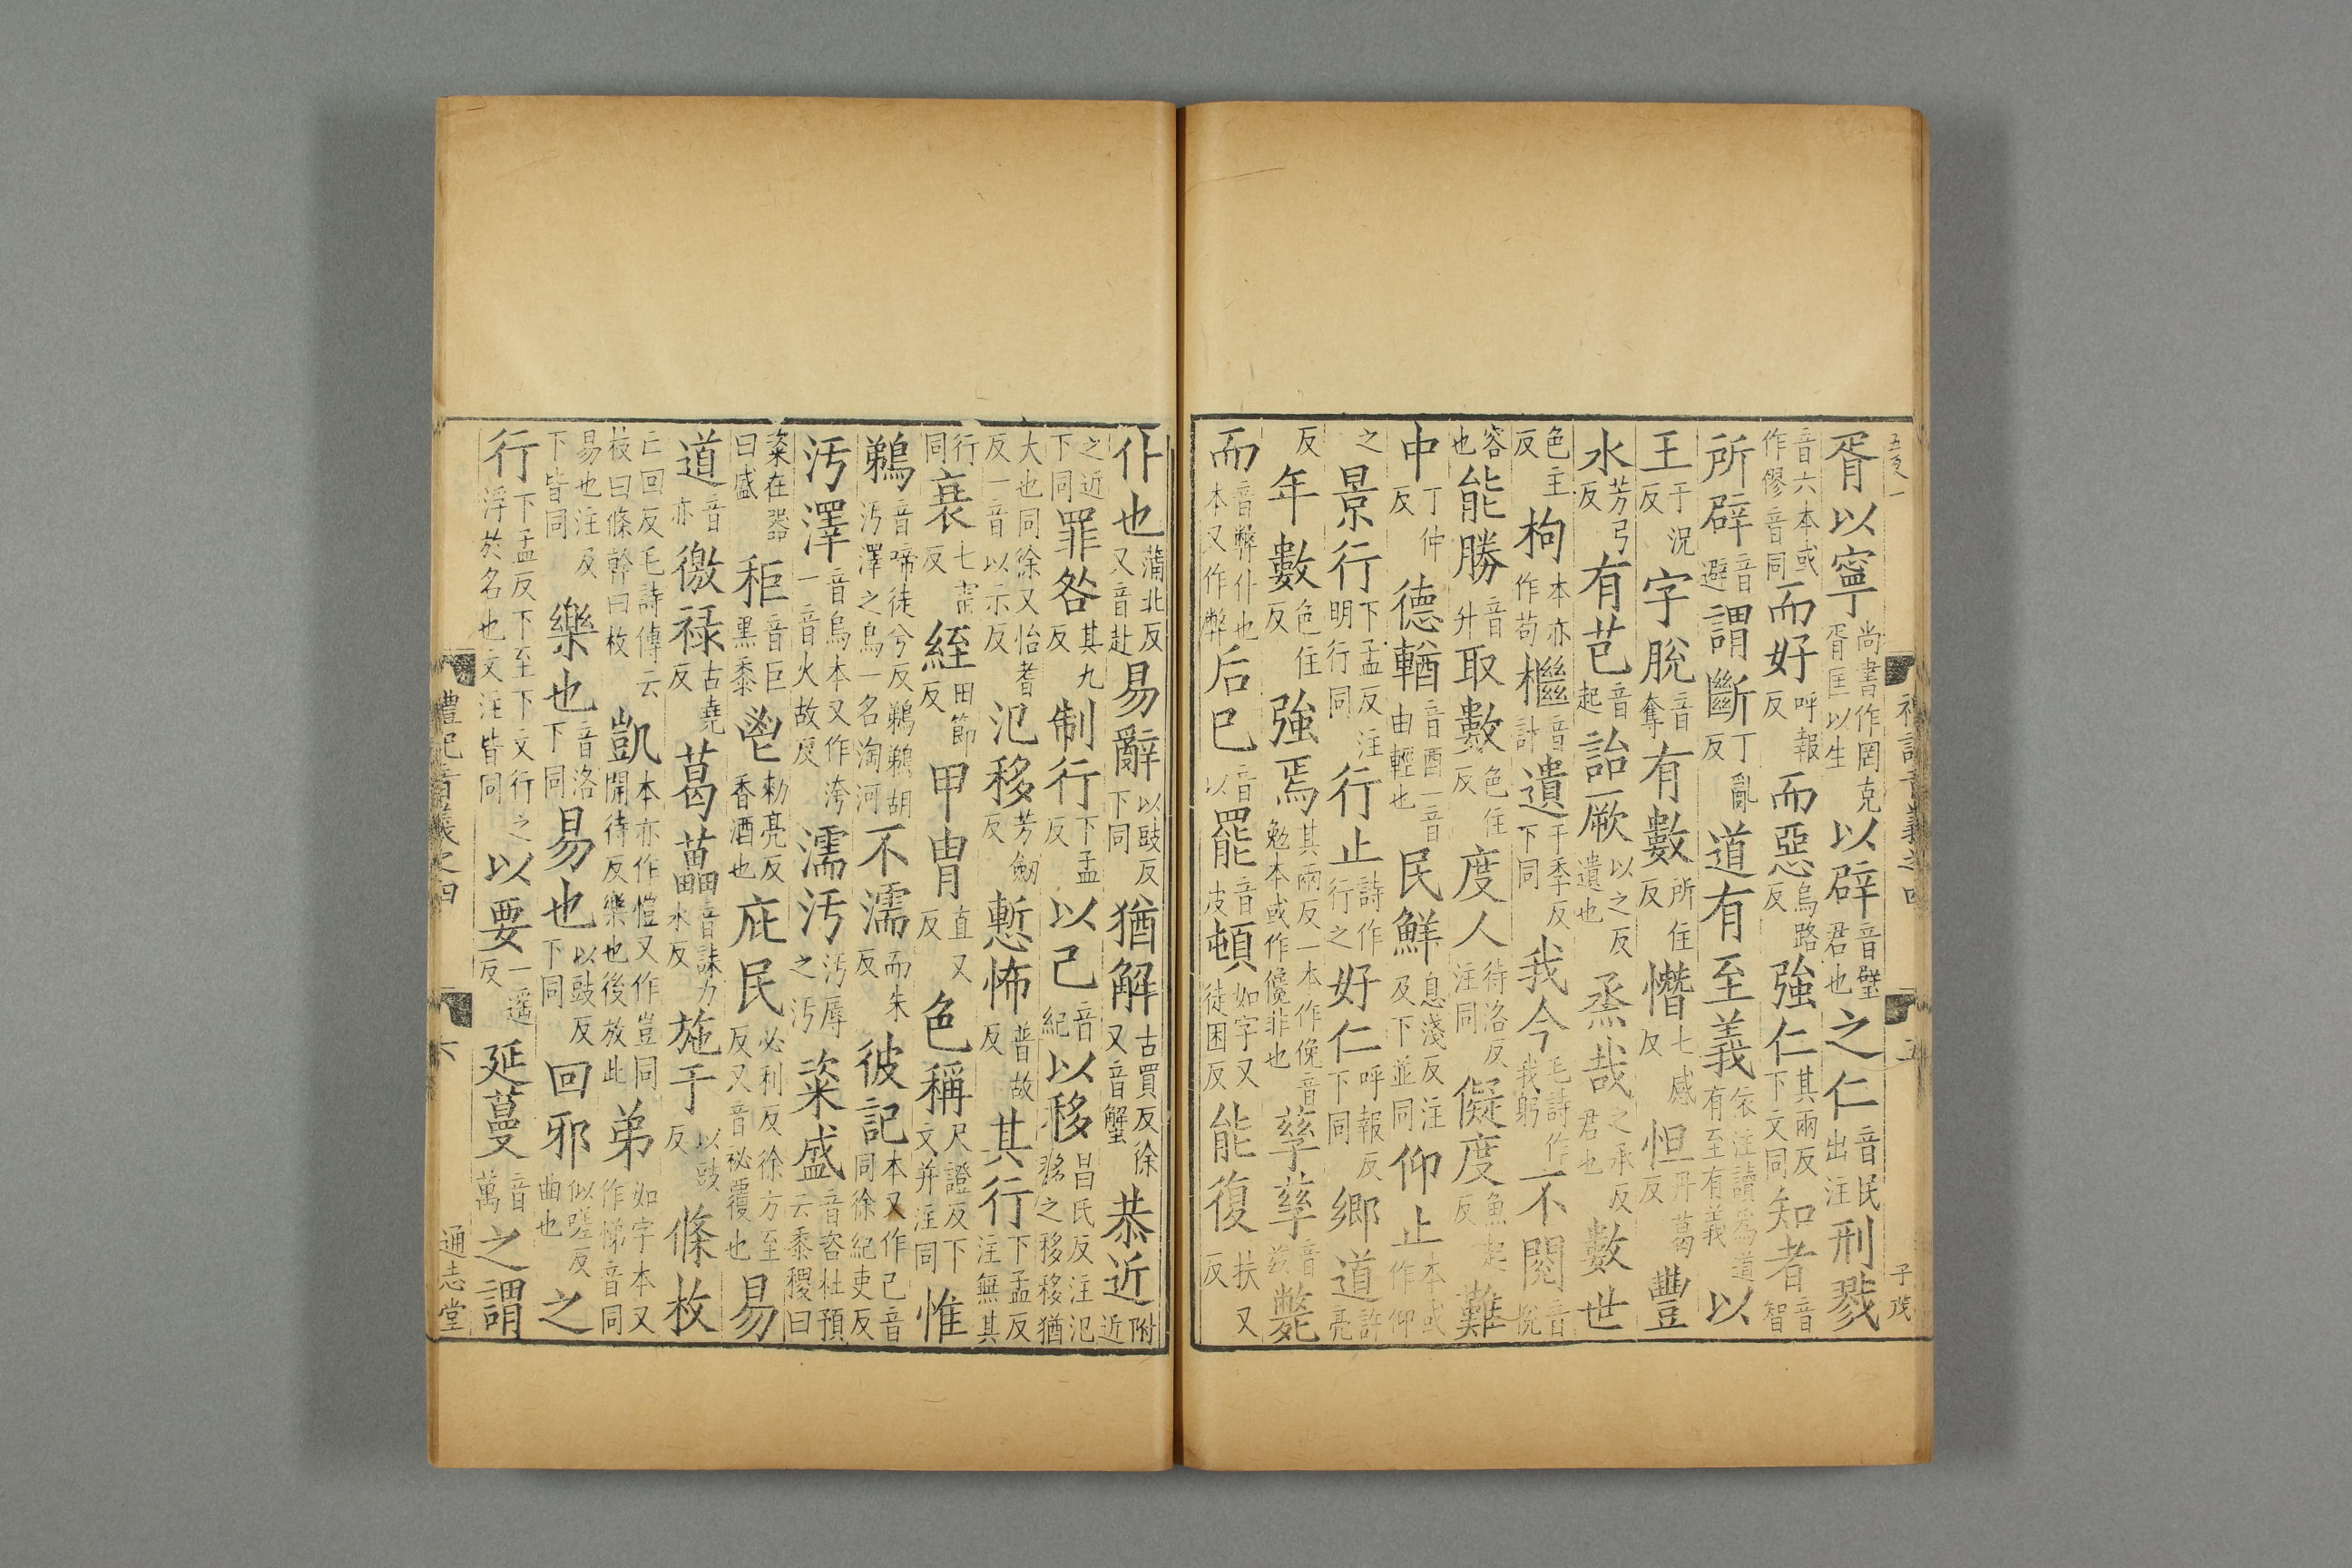 胥以寧尚書作罔克胥匡以生以辟音璧君也之仁音民出注刑戮
音六本或作僇音同而好呼報反而惡烏路反強仁其兩反下文同知者音智
所辟音避謂斷丁亂反道有至義依注讀爲道有至有義以
王于況反字脫音奪有數所住反憯七感反怛丹葛反豐
水芳弓反有芑音起詒厥以之反遺也烝哉之承反君也數世
色主反枸本亦作苟檵音計遺于季反下同我今毛詩作我躬不閱音悅
容也能勝音升取數色住反度人待洛反注同儗度魚起反難
中丁仲反德輶音酉一音由輕也民鮮息淺反注及下並同仰止本或作仰
之景行下孟反注明行同行止詩作行之好仁呼報反下同鄉道許亮
反年數色住反強焉其兩反一本作俛音勉本或作儳非也孳孳音兹斃
而音弊仆也本又作弊后已音以罷音皮頓如字又徒困反能復扶又反
仆也蒲北反又音赴易辭以豉反下同猶解古買反徐又音蟹恭近附近
之近下同罪咎其九反制行下孟反以己音紀以移昌氏反注氾移之移移猶
大也同徐又怡耆反一音以示反氾移芳劒反慙怖普故反其行下孟反注無其
行同衰七雷反絰田節反甲冑直又反色稱尺證反下文并注同惟
鵜音啼徒兮反鵜鵜胡汚澤之鳥一名淘河不濡而朱反彼記本又作己音同徐紀吏反
汚澤音烏本又作洿一音火故反濡汚汚辱之汚粢盛音咨杜預云黍稷曰
粢在器曰盛秬音巨黑黍鬯勑亮反香酒也庇民必利反徐方至反又音祕覆也易
道音亦徼祿古堯反葛藟音誄力水反施于以豉反條枚
亡回反毛詩傳云枝曰條幹曰枚凱本亦作愷又作豈同開待反樂也後放此弟如字本又作悌音同
易也注及下皆同樂也音洛下同易也以豉反下同回邪似嗟反曲也之
行下孟反下至下文行之浮於名也文注皆同以要一遥反延蔓音萬之謂
禮記音義之四
六
通志堂